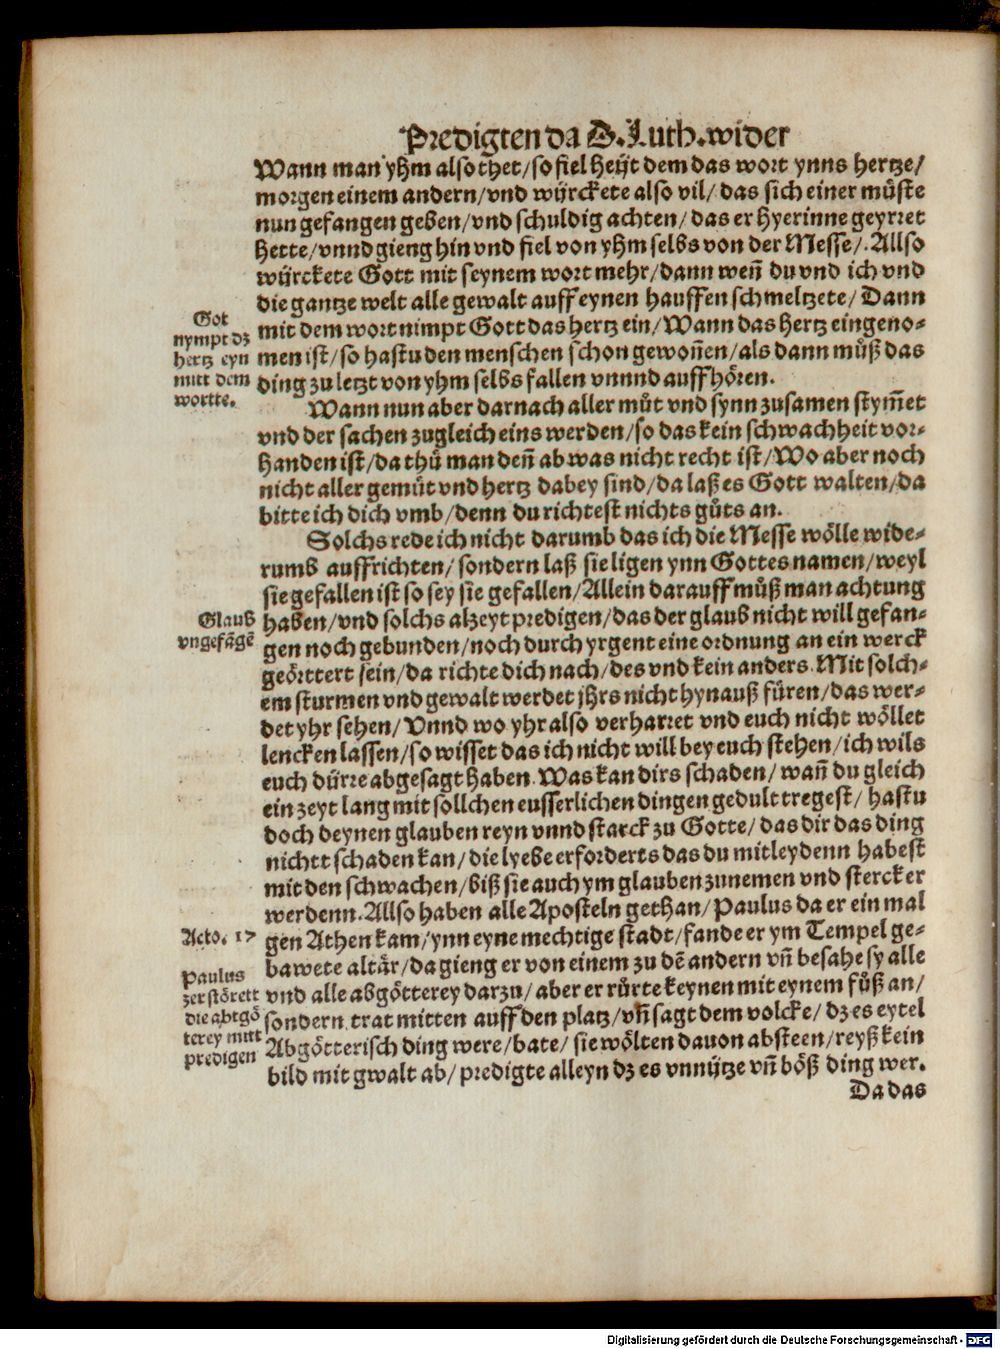 Predigten da D. Luth. wider
Wann man yhm also thet/ so fiel heüt dem das wort ynns hertze/
morgen einem andern/ vnd würckete also vil/ das sich einer müste
nun gefangen geben/ vnd schuldig achten/ das er hyerinne geyrret
hette/ vnnd gieng hin vnd fiel von yhm selbs von der Messe/. Allso
würckete Gott mit seynem wort mehr/ dann weñ du vnd ich vnd
die gantze welt alle gewalt auff eynen hauffen schmeltzete/ Dann
mit dem wort nimpt Gott das hertz ein/ Wann das hertz eingeno-
men ist/ so hastu den menschen schon gewoñen/ als dann müß das
ding zu letzt von yhm selbs fallen vnnnd auffhören.
Got
nympt dz
hertz eyn
mitt dem
wortte.
Wann nun aber darnach aller müt vnd synn zusamen stym̃et
vnd der sachen zugleich eins werden/ so das kein schwachheit vor-
handen ist/ da thů man deñ ab was nicht recht ist/ Wo aber noch
nicht aller gemüt vnd hertz dabey sind/ da laß es Gott walten/ da
bitte ich dich vmb/ denn du richtest nichts gůts an.
Solchs rede ich nicht darumb das ich die Messe wölle wide-
rumb auffrichten/ sondern laß sie ligen ynn Gottes namen/ weyl
sie gefallen ist so sey sie gefallen/ Allein darauff můß man achtung
haben/ vnd solchs alzeyt predigen/ das der glaub nicht will gefan-
gen noch gebunden/ noch durch yrgent eine ordnung an ein werck
geörttert sein/ da richte dich nach/ des vnd kein anders. Mit solch-
em sturmen vnd gewalt werdet jhrs nicht hynauß füren/ das wer-
det yhr sehen/ Vnnd wo yhr also verharret vnd euch nicht wöllet
lencken lassen/ so wisset das ich nicht will bey euch stehen/ ich wils
euch dürre abgesagt haben. Was kan dirs schaden/ wañ du gleich
ein zeyt lang mit sollchen eusserlichen dingen gedult tregest/ hastu
doch deynen glauben reyn vnnd starck zu Gotte/ das dir das ding
nichtt schaden kan/ die lyebe erforderts das du mitleydenn habest
mit den schwachen/ biß sie auch ym glauben zunemen vnd stercker
werdenn. Allso haben alle Aposteln gethan/ Paulus da er ein mal
gen Athen kam/ ynn eyne mechtige stadt/ fande er ym Tempel ge-
bawete altär/ da gieng er von einem zu dẽ andern vñ besahe sy alle
vnd alle abgötterey darzu/ aber er rürte keynen mit eynem fůß an/
sondern trat mitten auff den platz/ vñ sagt dem volcke/ dz es eytel
Abgötterisch ding were/ bate/ sie wölten dauon absteen/ reyß kein
bild mit gwalt ab/ predigte alleyn dz es vnnütze vñ böß ding wer.
Glaub
vngefãgẽ
Acto. 17
Paulus
zerstörett
die abtgö
terey mitt
predigen
Da das
Digitalisierung gefördert durch die Deutsche Forschungsgemeinschaft - DFG